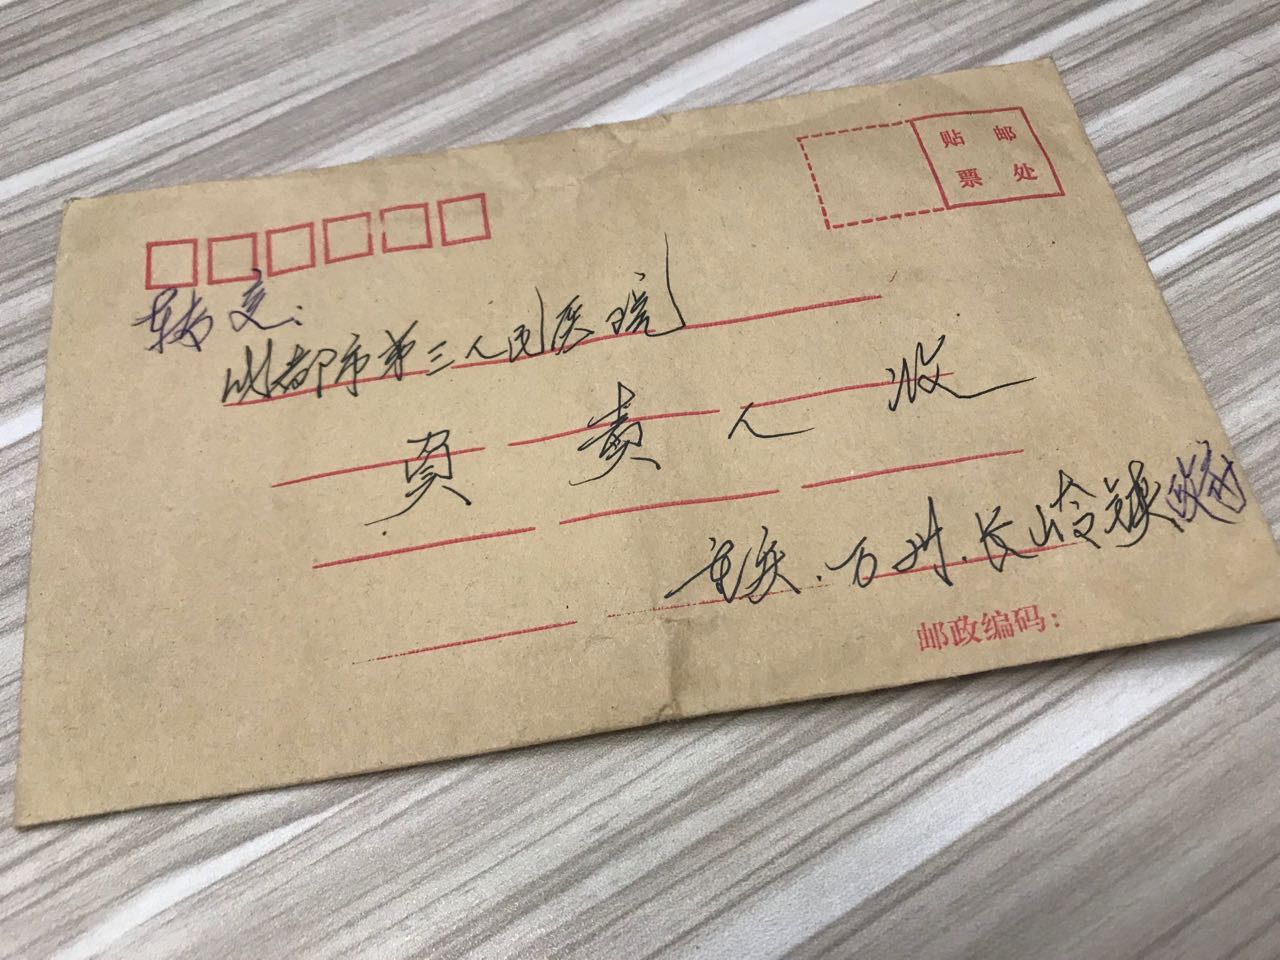 贴 邮
票 处
转交：
成都市第三人民医院
负责人收
重庆.万州.长岭镇
邮政编码：